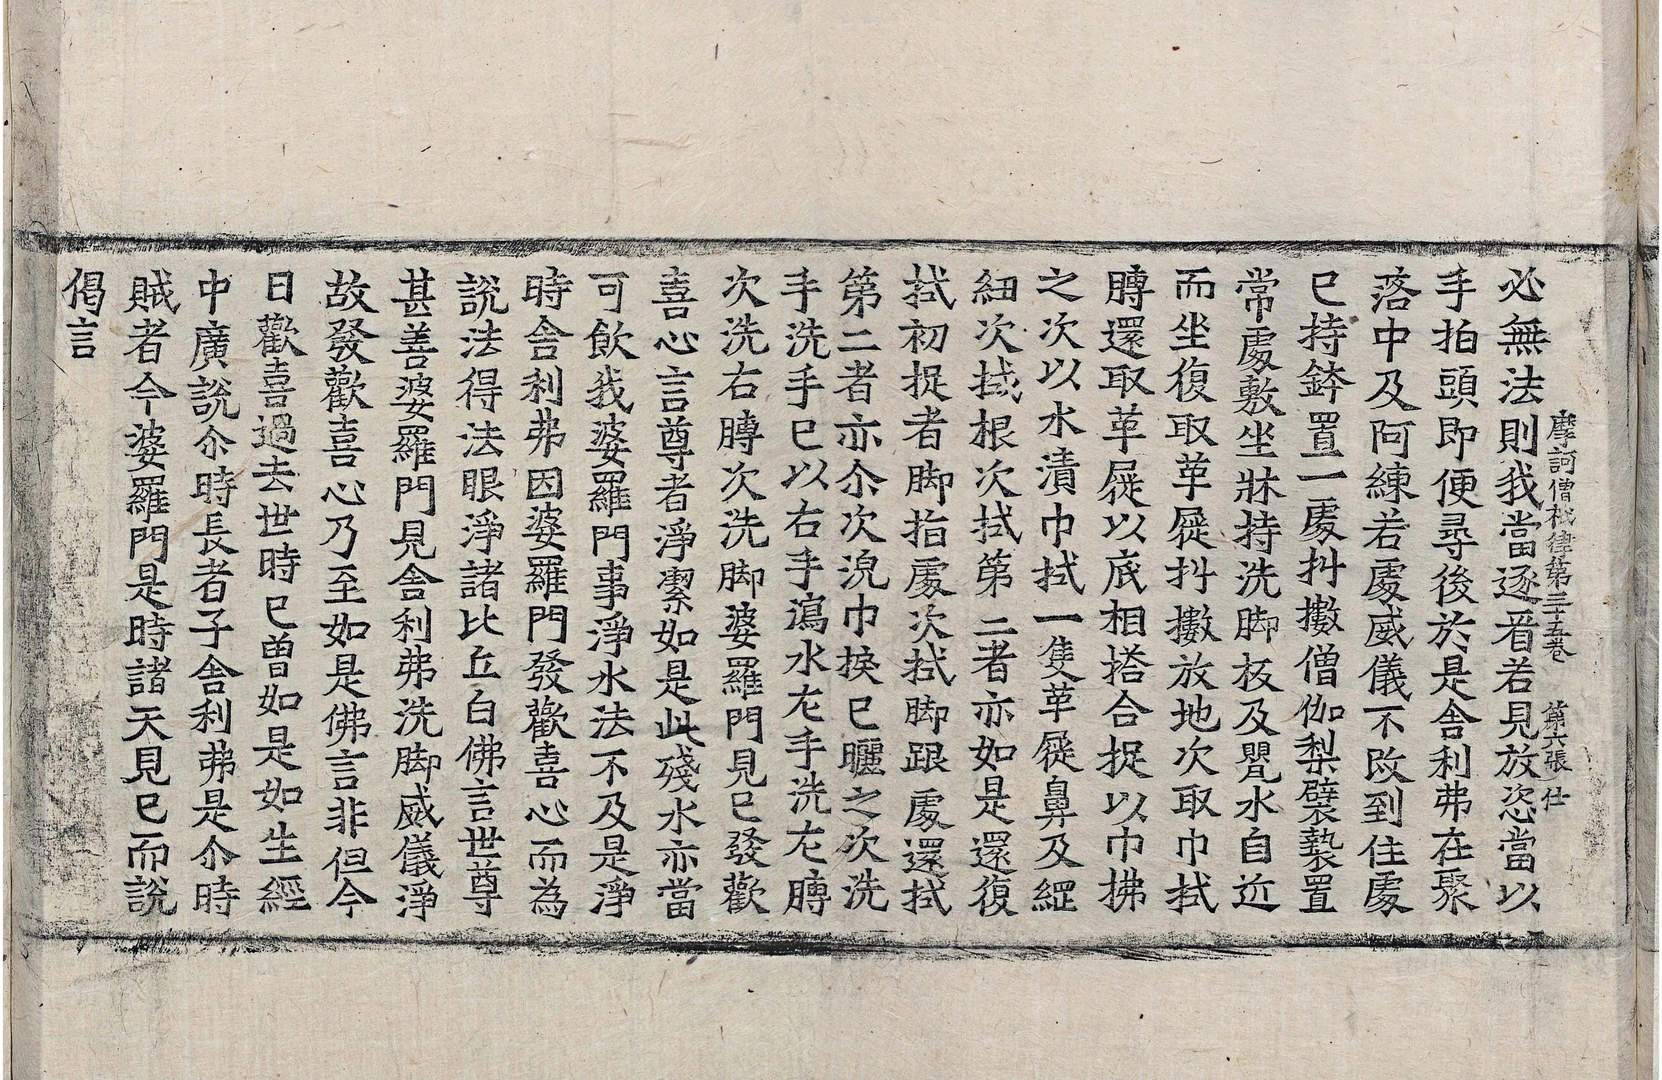 摩訶僧祇律第三十五卷 第六張 仕
必無法則我當逐看若見放恣當以
手拍頭即便尋後於是舍利弗在聚
落中及阿練若處威儀不改到住處
已持鉢置一處抖擻僧伽梨襞褺置
常處敷坐牀持洗脚板及瓨水自近
而坐復取革屣抖擻放地次取巾拭
膞還取革屣以底相搭合捉以巾拂
之次以水漬巾拭一隻革屣鼻及繧
紐次拭根次拭第二者亦如是還復
拭初捉者脚指處次拭脚跟處還拭
第二者亦尒次浣巾捩已曬之次洗
手洗手已以右手瀉水左手洗左膞
次洗右膞次洗脚婆羅門見已發歡
喜心言尊者淨潔如是此殘水亦當
可飲我婆羅門事淨水法不及是淨
時舍利弗因婆羅門發歡喜心而為
說法得法眼淨諸比丘白佛言世尊
甚善婆羅門見舍利弗洗脚威儀淨
故發歡喜心乃至如是佛言非但今
日歡喜過去世時已曾如是如生經
中廣說尒時長者子舍利弗是尒時
賊者今婆羅門是時諸天見已而說
偈言